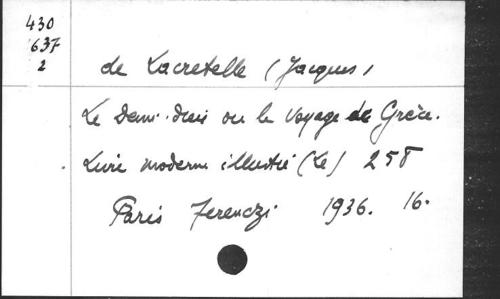 430
637
2
de Lacretelle (Jacques)
Le Demi-dieu ou le voyage de Grèce.
Livre moderne illustré (Le) 258
Paris Ferenczi 1936. 16.